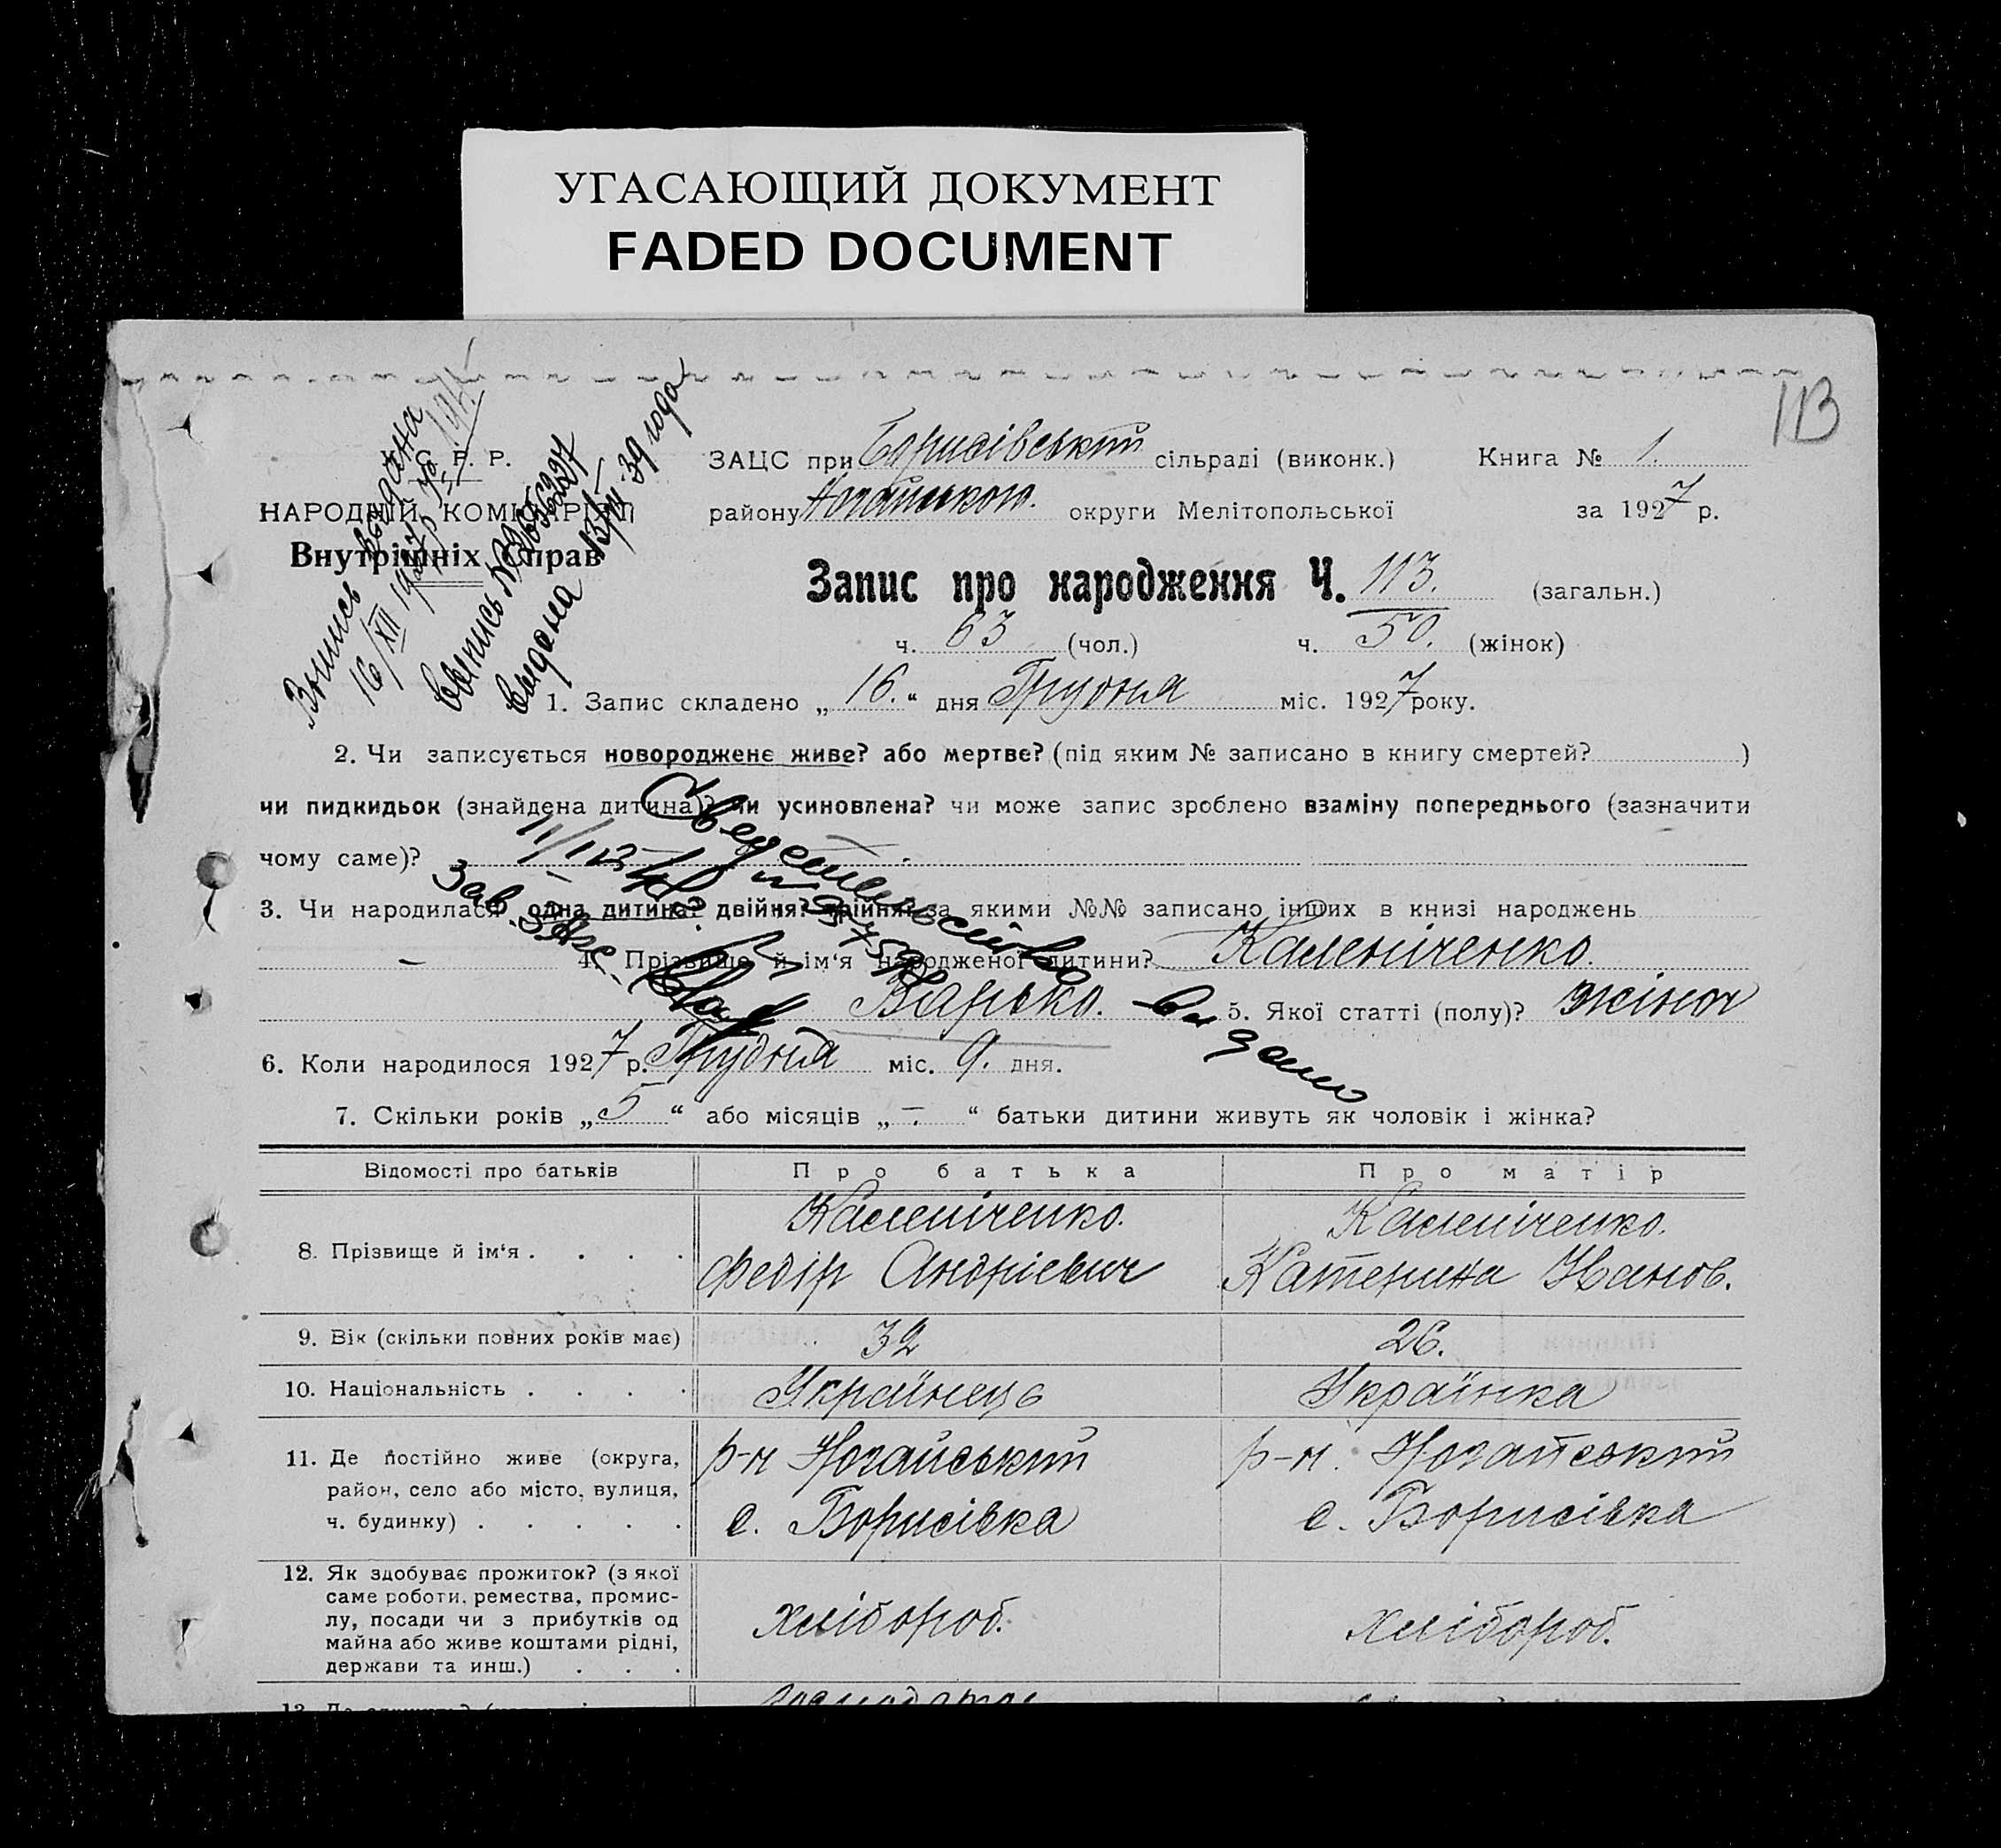 УГАСАЮЩИЙ ДОКУМЕНТ
FADED DOCUMENT
113
У. С. Р. Р.
НАРОДНІЙ КОМІСАРІЯТ
Внутрішніх Справ
Випись видана
16/XII 1927 р.
Выпись №
выдана 39 года
ЗАЦС при Борисівський сільраді (виконк.) Книга № 1.
району Ногайського. округи Мелітопольської за 1927 р.
Запис про народження Ч. 113. (загальн.)
ч. 63 (чол.) ч. 50. (жінок)
1. Запис складено „16.“ дня Грудня міс. 1927 року.
2. Чи записується новороджене живе? або мертве? (під яким № записано в книгу смертей? )
чи пидкидьок (знайдена дитина)? чи усиновлена? чи може запис зроблено взаміну попереднього (зазначити
чому саме)? —
Свидетельство
выдано
Зав. Загс
3. Чи народилася одна дитина? двійня? трійня? за якими №№ записано інших в книзі народжень
— 4. Прізвище й ім‘я народженої дитини? Каленіченко.
Варька. 5. Якої статті (полу)? жіноч
6. Коли народилося 1927 р. Грудня міс. 9. дня.
7. Скільки років „5“ або місяців „—“ батьки дитини живуть як чоловік і жінка?
Відомості про батьків Про батька Про матір
8. Прізвище й ім‘я . . . . Каленіченко. Каленіченко.
Федір Андрієвич Катерина Іванов.
9. Вік (скільки повних років має) 32 26.
10. Національність . . . . Українець Українка
11. Де постійно живе (округа, р-н Ногайський р-н. Ногайський
район, село або місто, вулиця,
ч. будинку) . . . . . с. Борисівка с. Борисівка
12. Як здобуває прожиток? (з якої
саме роботи, ремества, промис-
лу, посади чи з прибутків од хлібороб. хлібороб.
майна або живе коштами рідні,
держави та инш.) . . .